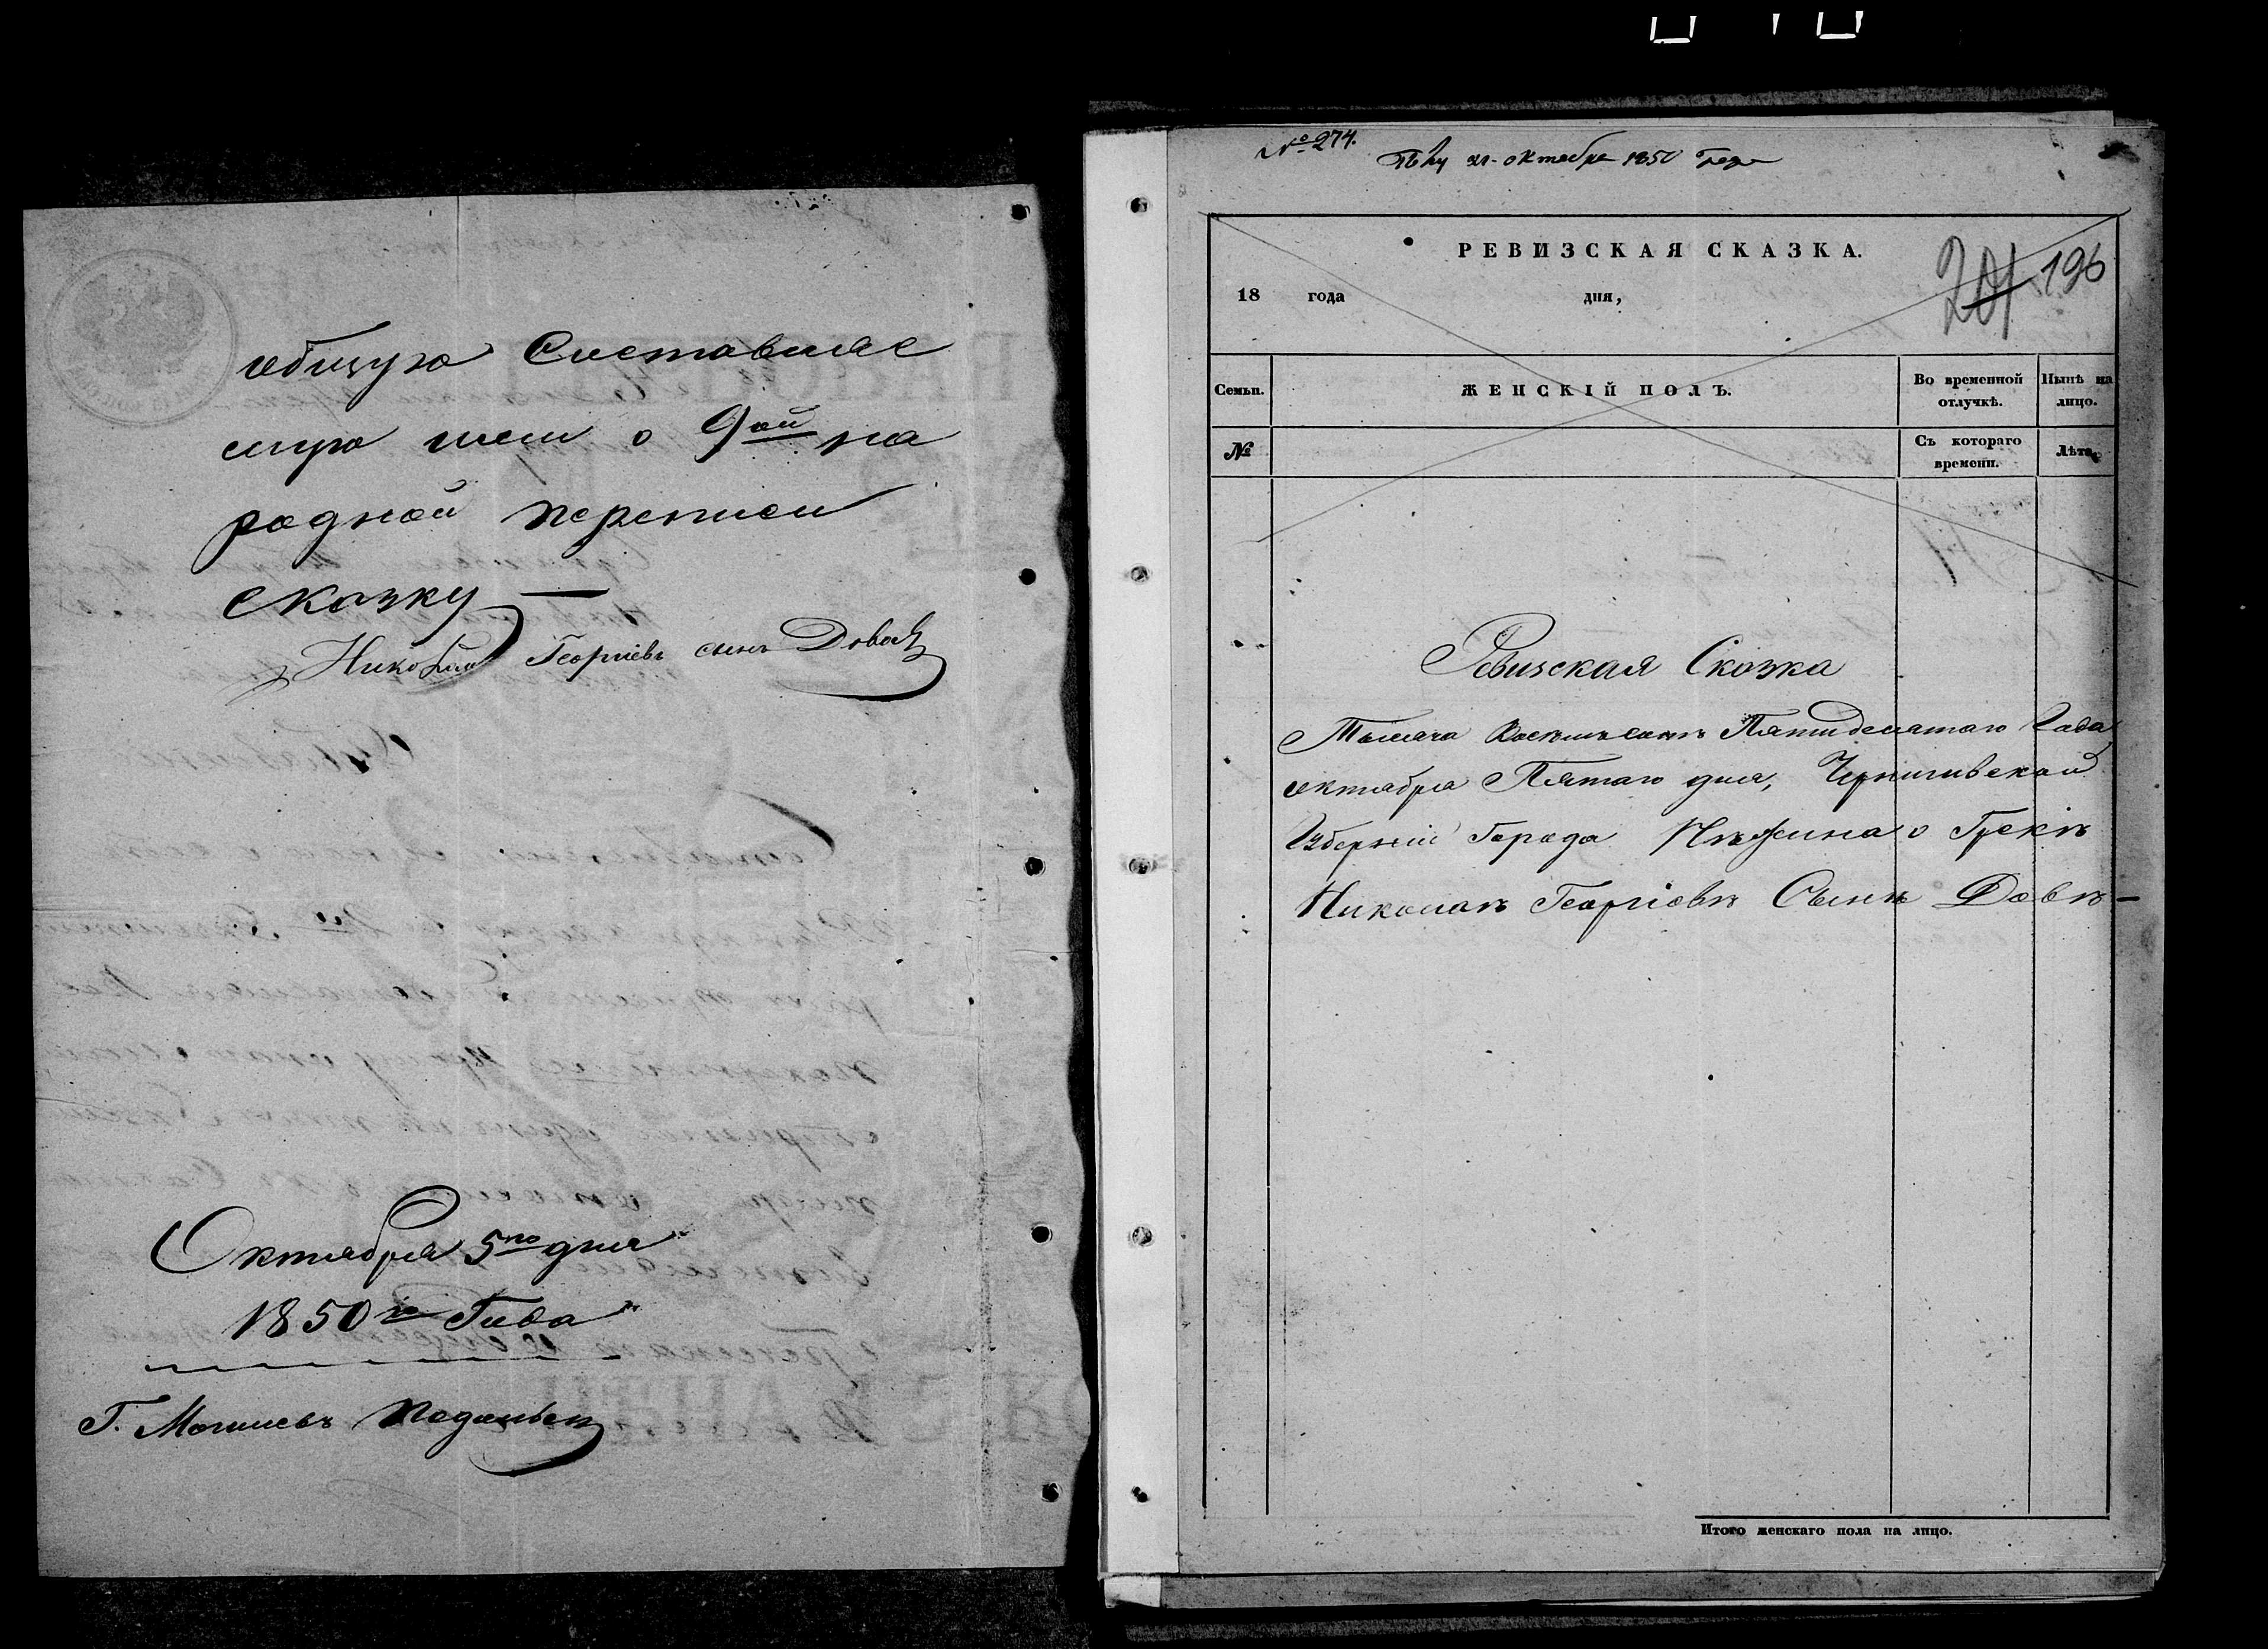 общую Составляе
мую мной о 9ой на
родной переписи
сказку —
Николай Георгіевъ сынъ
Октября 5го дня
1850го Года
Г. Могилевъ Подольск
№ 274.
21 октября 1850 года
РЕВИЗСКАЯ СКАЗКА.
201 196
18 года дня,
Семьи. ЖЕНСКІЙ ПОЛЪ. Во временной отлучкѣ. Нынѣ на лицо.
№ Съ котораго времени. Лѣта.
Ревизская Сказка
Тысяча Восемьсотъ Пятидесятаго Года
октября Пятаго дня, Черниговской
Губерніи Города Нѣжина о Грекѣ
Николаѣ Георгіевѣ Сынѣ Довѣ —
Итого женскаго пола на лицо.